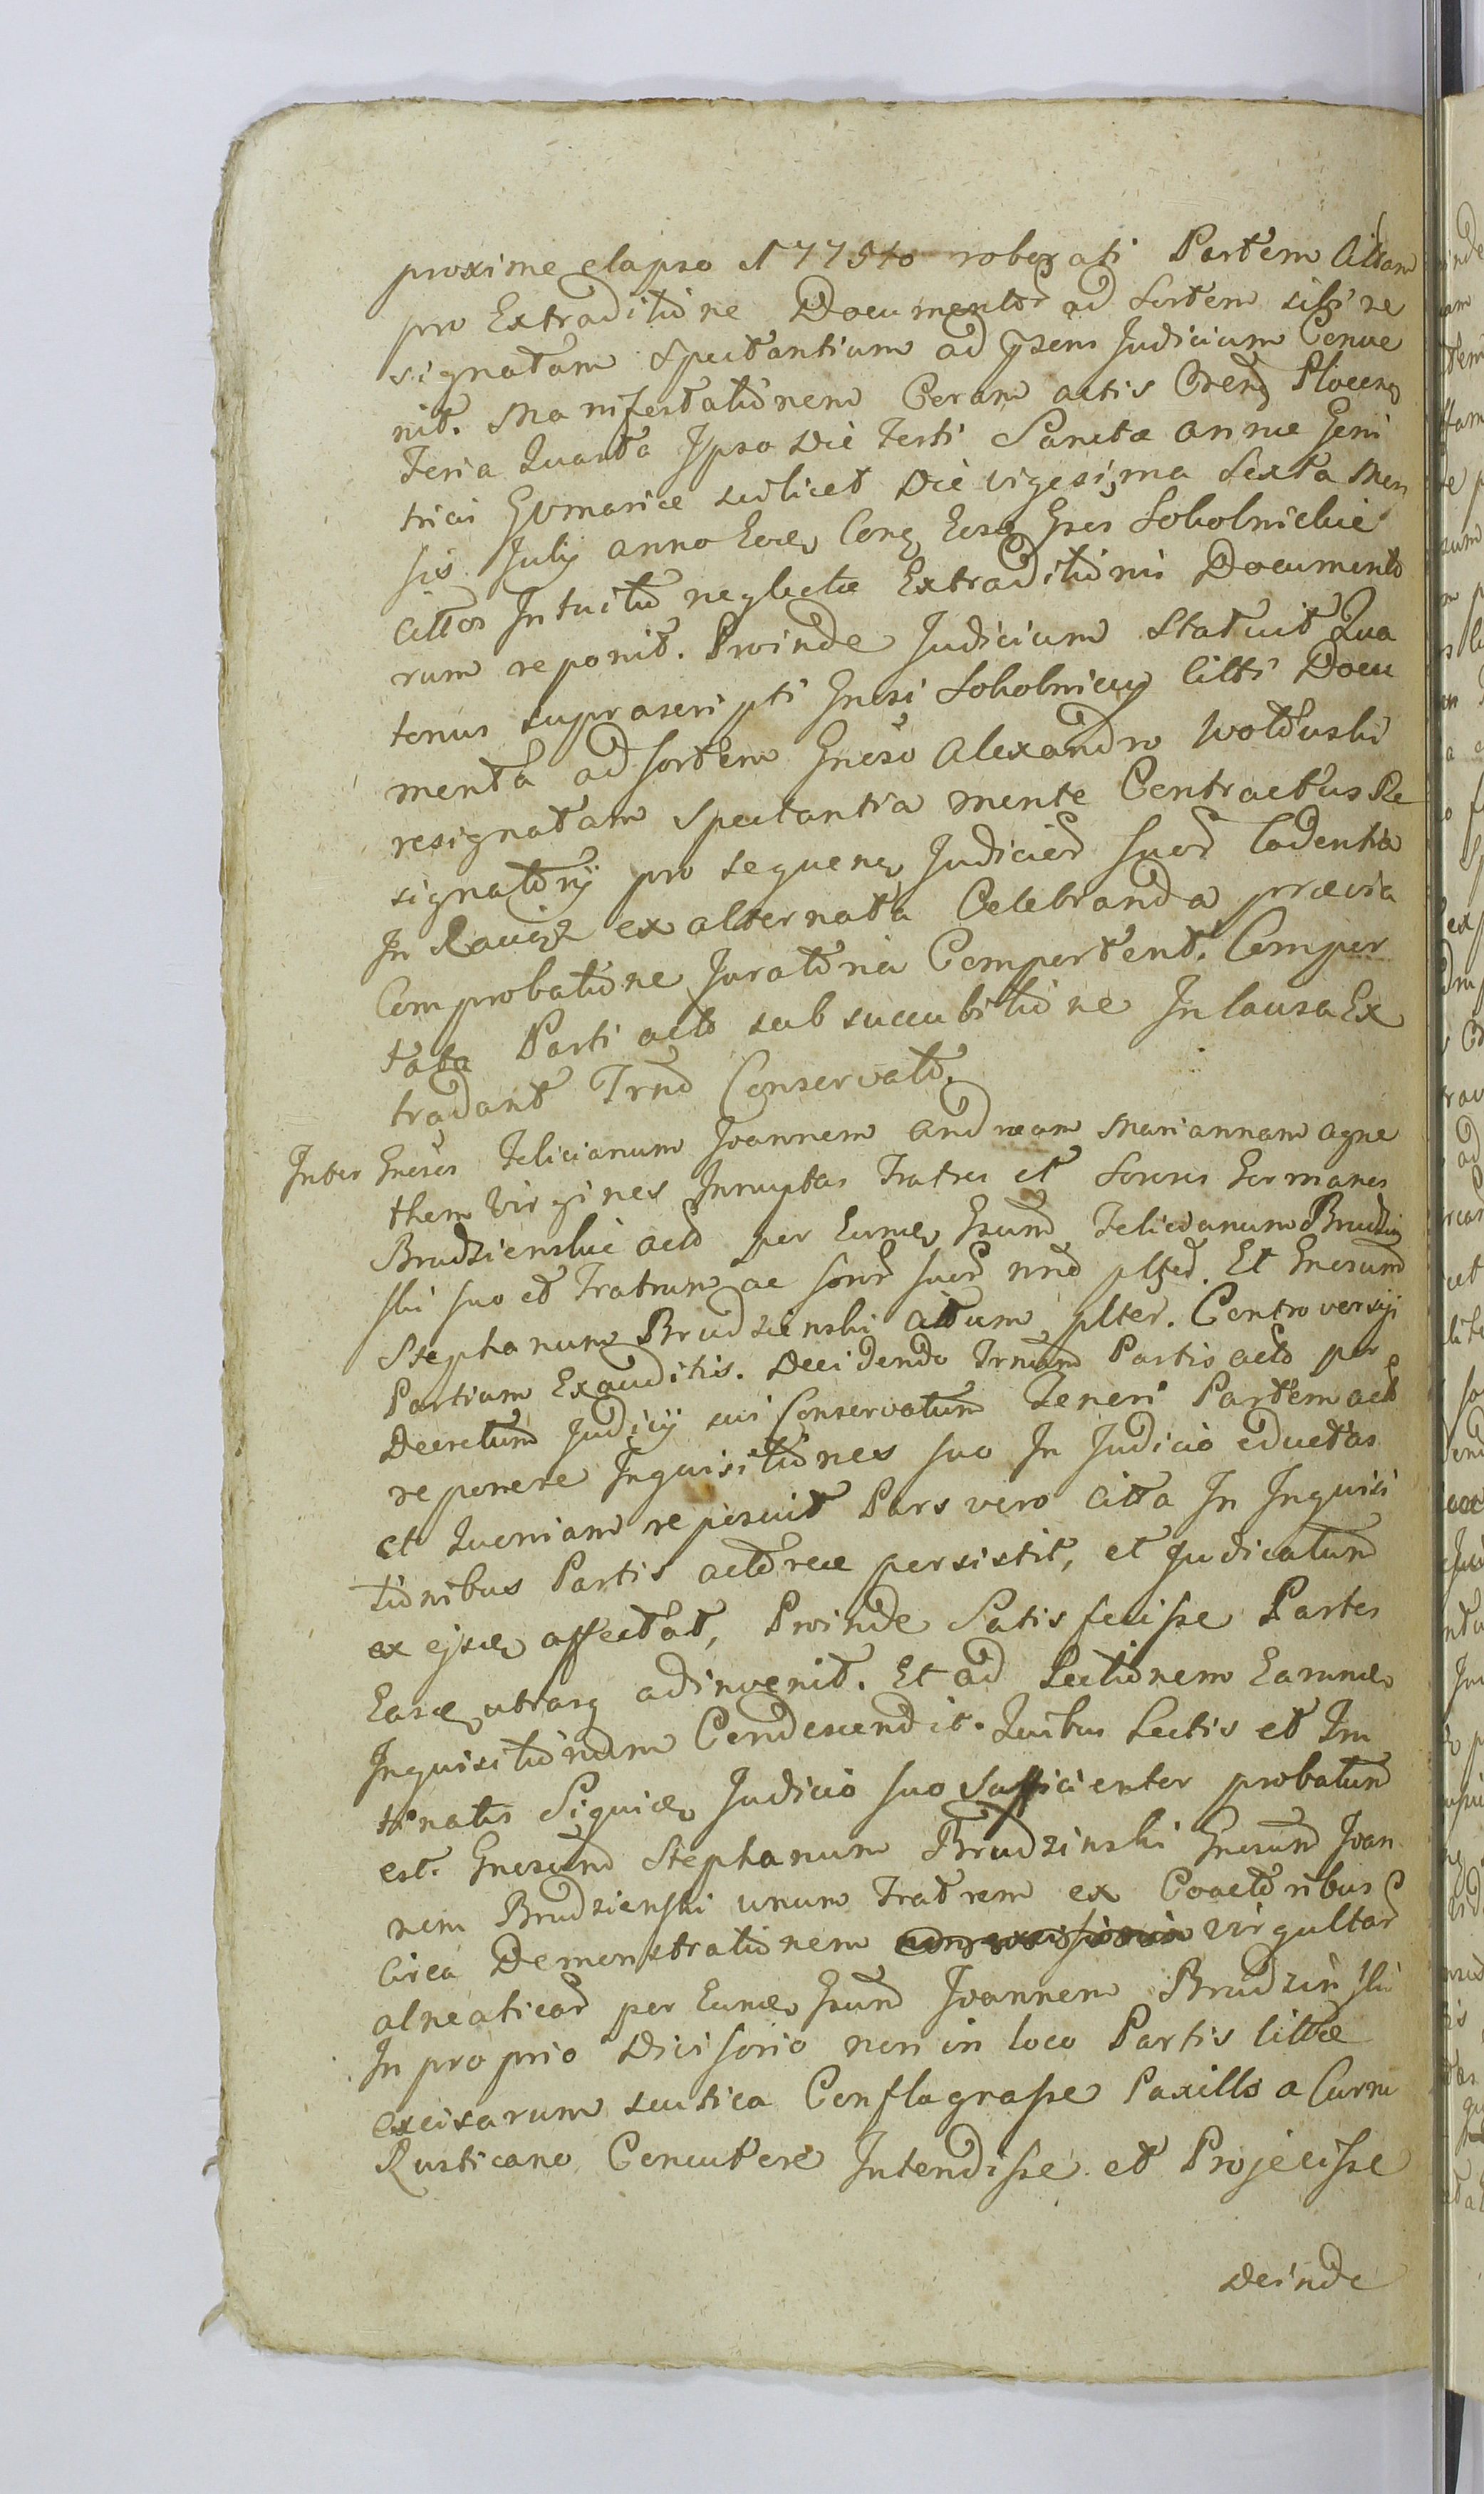 proxime elapso 1775to roborati Partem Cittam
pro Extraditione Documentor ad Sortem sibi re
signatam spectantium ad psens Judicium Conve
nit. Manifestationem Coram actis Crens Plocens
Feria Quarta Ipso Die Festi Sanctæ Annæ Geni
tricis Gvmariæ scilicet Die vigesima Sexta Men
sis July Anno Eoe Conq Eosq Gsos Sokolnickie
Cittos Intuitu neglectæ Extraditionis Documento
rum reponit. Proinde Judicium Statuit Qua
tenus suprascripti Gnosi Sokolnicy Citti Docu
menta ad sortem Gnoso Alexandro Wolduski
resignatam Spectantia mente Contractus Re
signatorij pro sequen Judicior suor Cadentia
In Raciąż ex alternata Celebranda prævia
Comprobatione Juratoria Comportent. Compor
tata Parti acto sub succubitione In Causa Ex
tradant Trno Conservato.
Inter Gnosos Felicianum Joannem Andream Mariannam Agne
them Virgines Innuptas Fratres et Sorores Germanos
Brudzienskie acto per Eume Gsum Felicianum Brudzin
ski suo et Fratrum ac soror suor nne pltes. Et Gnosum
Stephanum Brudzienski Citum plter. Controversijs
Partium Exauditis. Decidendo Trnum Partis acto per
Decretum Judicij sui Conservatum Teneri Partem acto
reponere Inquisitiones suo In Judicio eductas
et Quoniam reposuit Pars vero Citta In Inquisi
tionibus Partis actoreæ persistit, et Judicatum
ex ejsde affectat, Proinde Satisfecisse Partes
Easde utrasq adinvenit. Et ad Lectionem Earumde
Inquisitionum Condescendit. Quibus Lectis et Tru
tinatis Siquide Judicio suo Sufficienter probatum
est. Gnosum Stephanum Brudzinski Gnosum Joan
nem Brudzienski unum Fratrem ex Coactoribus
Circa Demonstrationem virgultar
alneaticar per Eumde Gsum Joannem Brudzinski
In proprio Divisorio non in loco Partis Cittæ
excisarum scutica Conflagrasse Paxillo a Curru
Rusticano Concutere Intendisse et Projecisse
Deinde